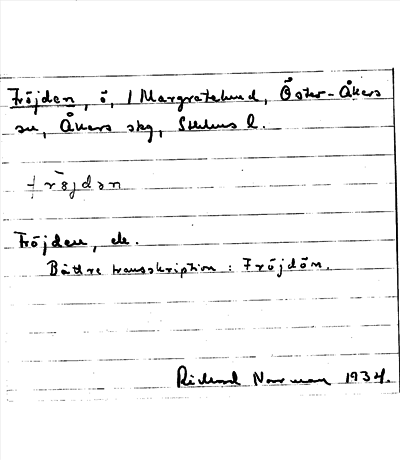 Fröjden, ö, / Margretelund, Öster-Åkers
sn, Åkers skg, Sthlms l.
frøjdən
Fröjden, ek.
Bättre transkription: Fröjdön.
Rickard Norrman 1934.